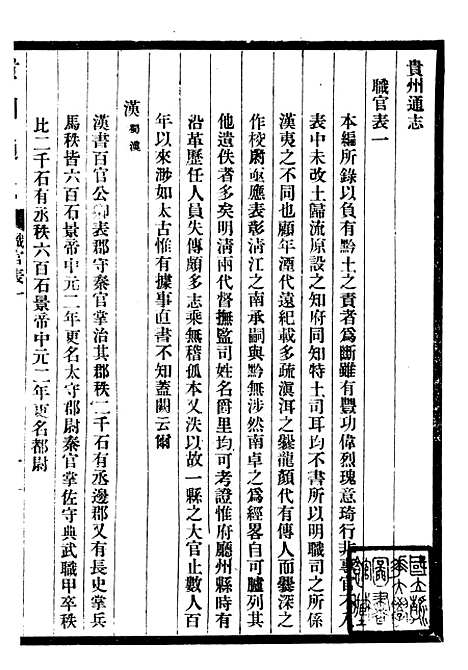 貴州通志
職官表一
本編所錄以負有黔土之責者爲斷雖有豐功偉烈瑰意琦行非專官不入
表中未改土歸流原設之知府同知特土司耳均不書所以明職司之所係
漢夷之不同也顧年湮代遠紀載多疏滇洱之爨龍顏代有傳人而爨深之
作校尉亟應表彰清江之南承嗣與黔無涉然南卓之爲經畧自可臚列其
他遺佚者多矣明清兩代督撫監司姓名爵里均可考證惟府廳州縣時有
沿革歷任人員失傳頗多志乘無稽孤本又泆以故一縣之大官止數人百
年以來渺如太古惟有據事直書不知蓋闕云爾
漢 蜀漢
漢書百官公卿表郡守秦官掌治其郡秩二千石有丞邊郡又有長史掌兵
馬秩皆六百石景帝中元二年更名太守郡尉秦官掌佐守典武職甲卒秩
比二千石有丞秩六百石景帝中元二年更名都尉
職官表一